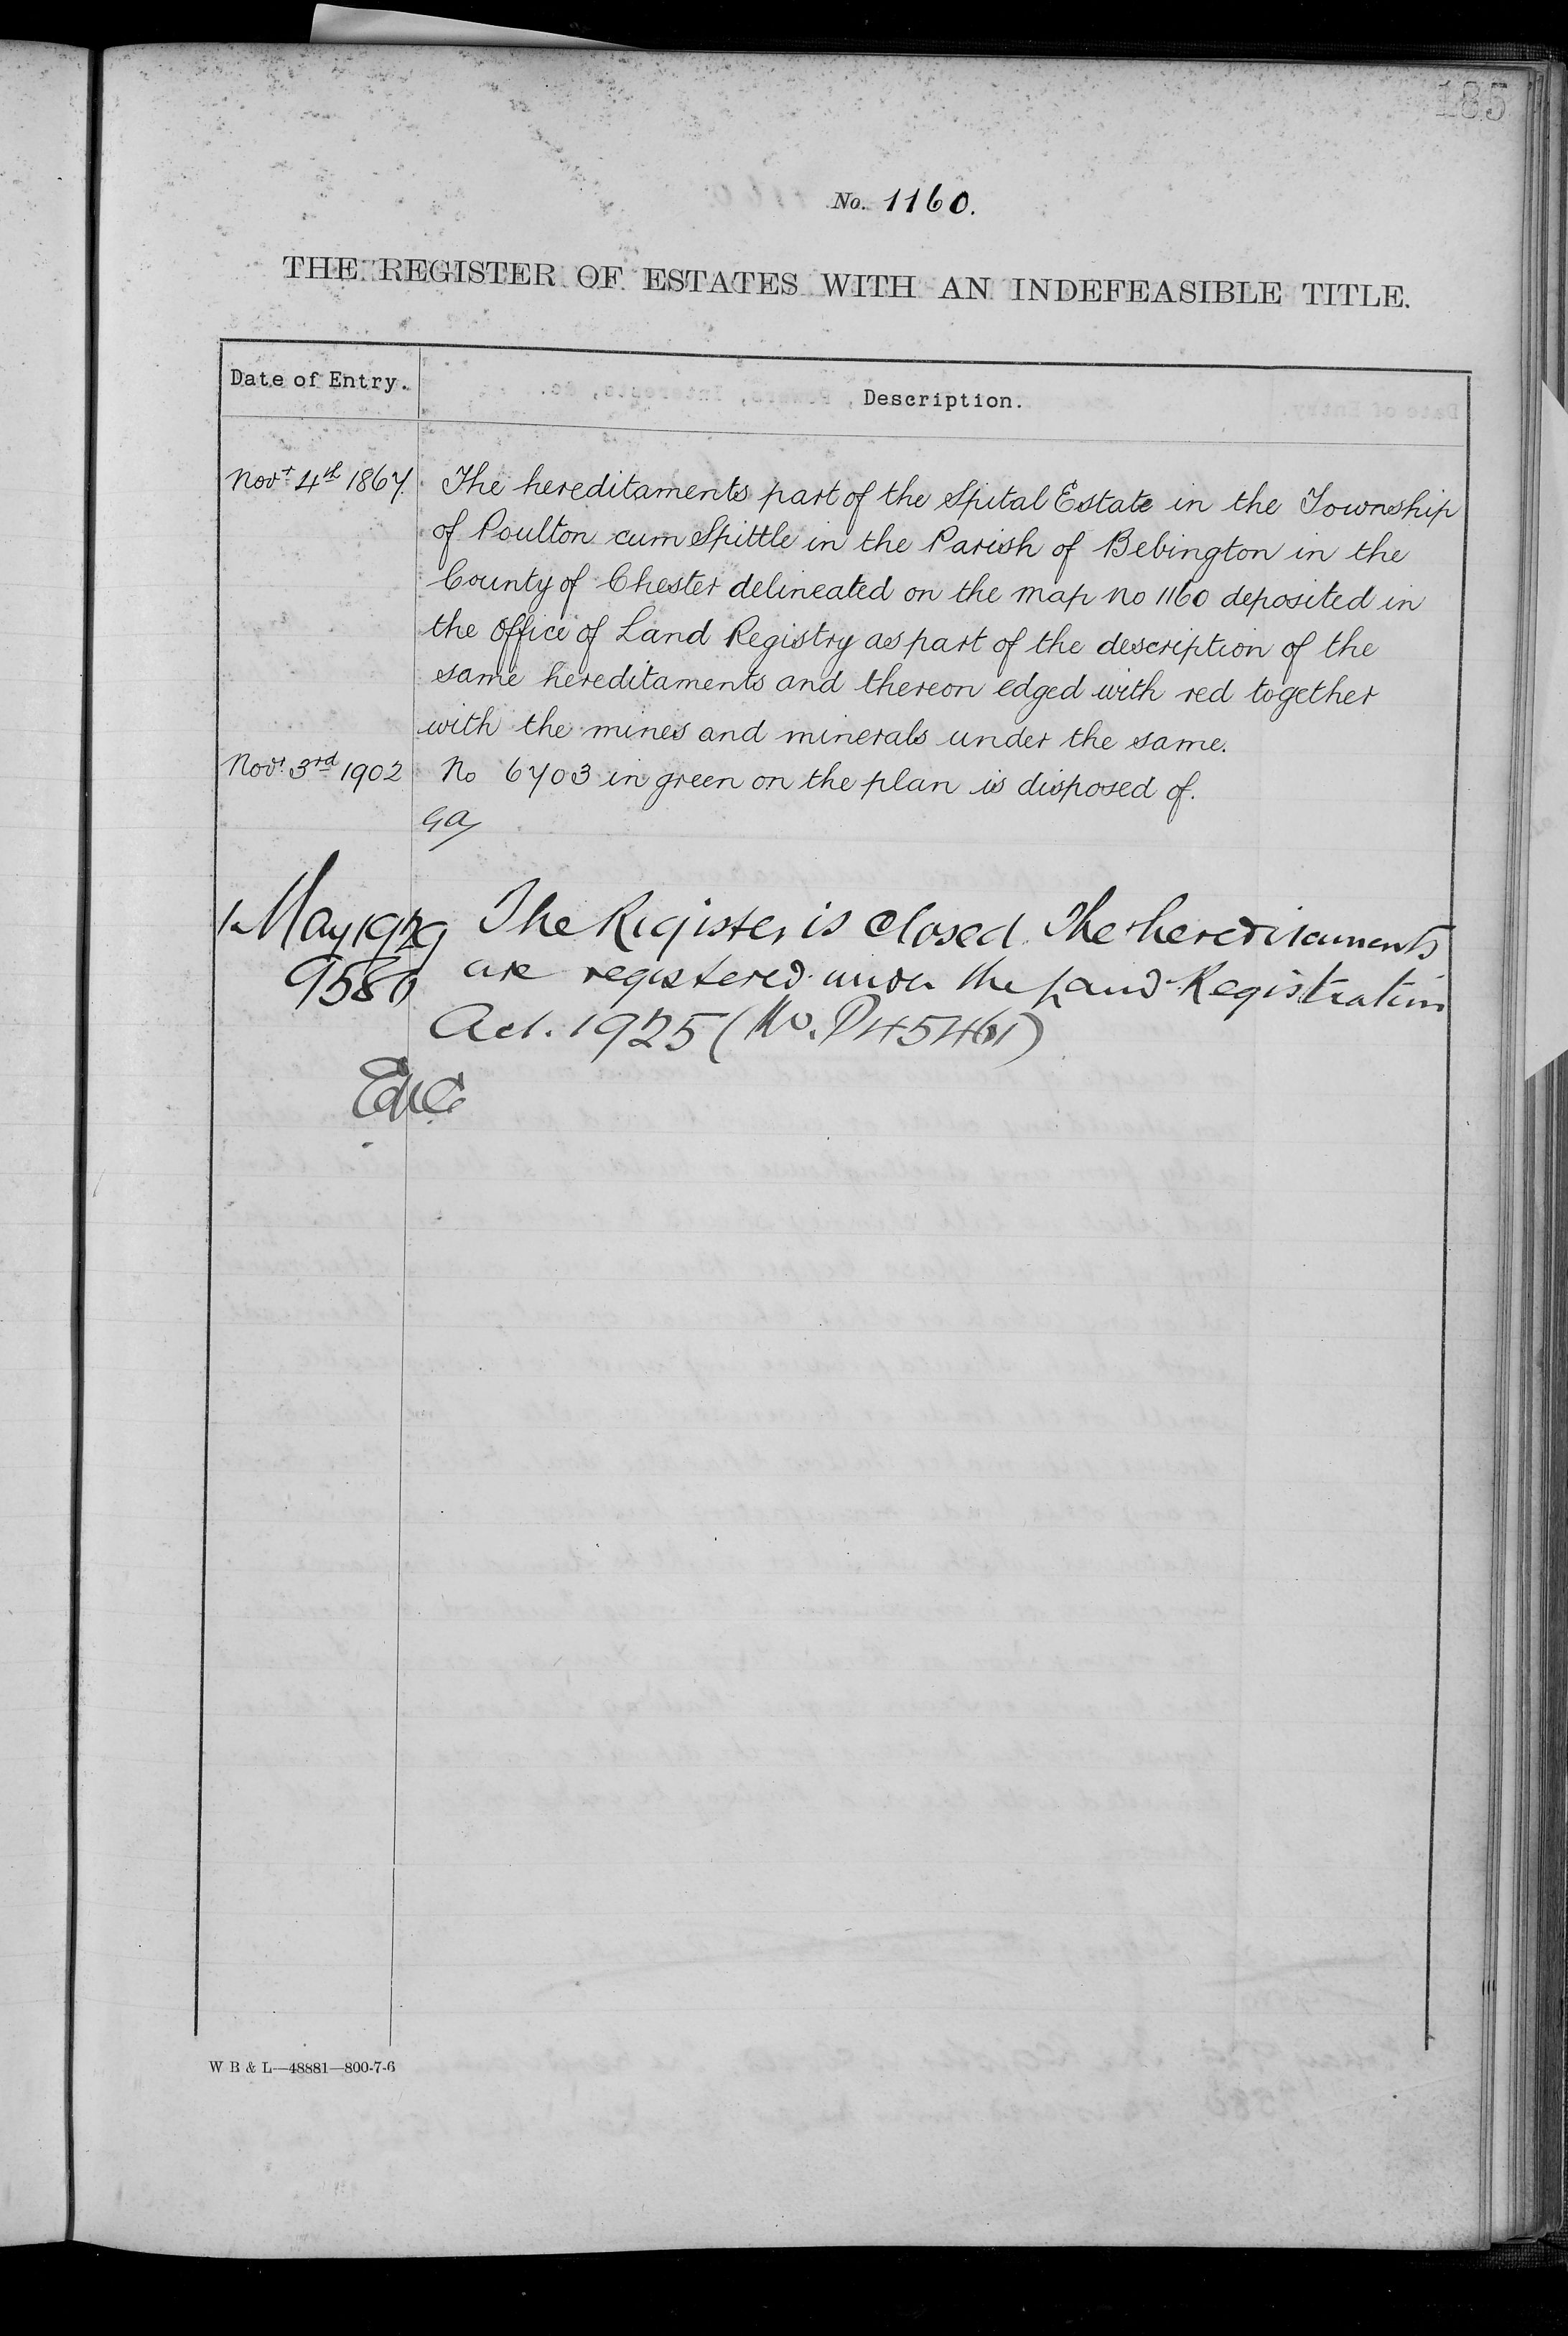 185
No. 1160.
THE REGISTER OF ESTATES WITH AN INDEFEASIBLE TITLE.
Date of Entry.
Description.
Novr. 4th 1867. The hereditaments part of the Spital Estate in the Township
of Poulton cum Spittle in the Parish of Bebington in the
County of Chester delineated on the map no 1160 deposited in
the Office of Land Registry as part of the description of the
same hereditaments and thereon edged with red together
with the mines and minerals under the same.
Novr. 3rd 1902 No 6703 in green on the plan is disposed of.
GA
1 May 1929 The Register is closed. The hereditaments
9580 are registered under the Land Registration
Act. 1925 (No. P45461)
W B & L—48881—800-7-6